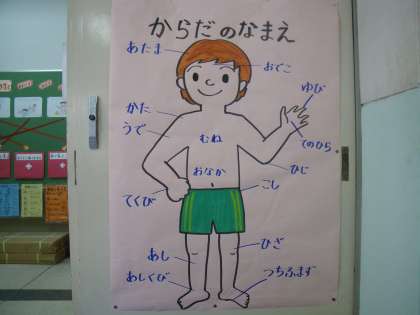 からだのなまえ
あたま
おでこ
ゆび
かた
うで
むね
てのひら
おなか
ひじ
こし
てくび
ひざ
あし
あしくび
つちふまず